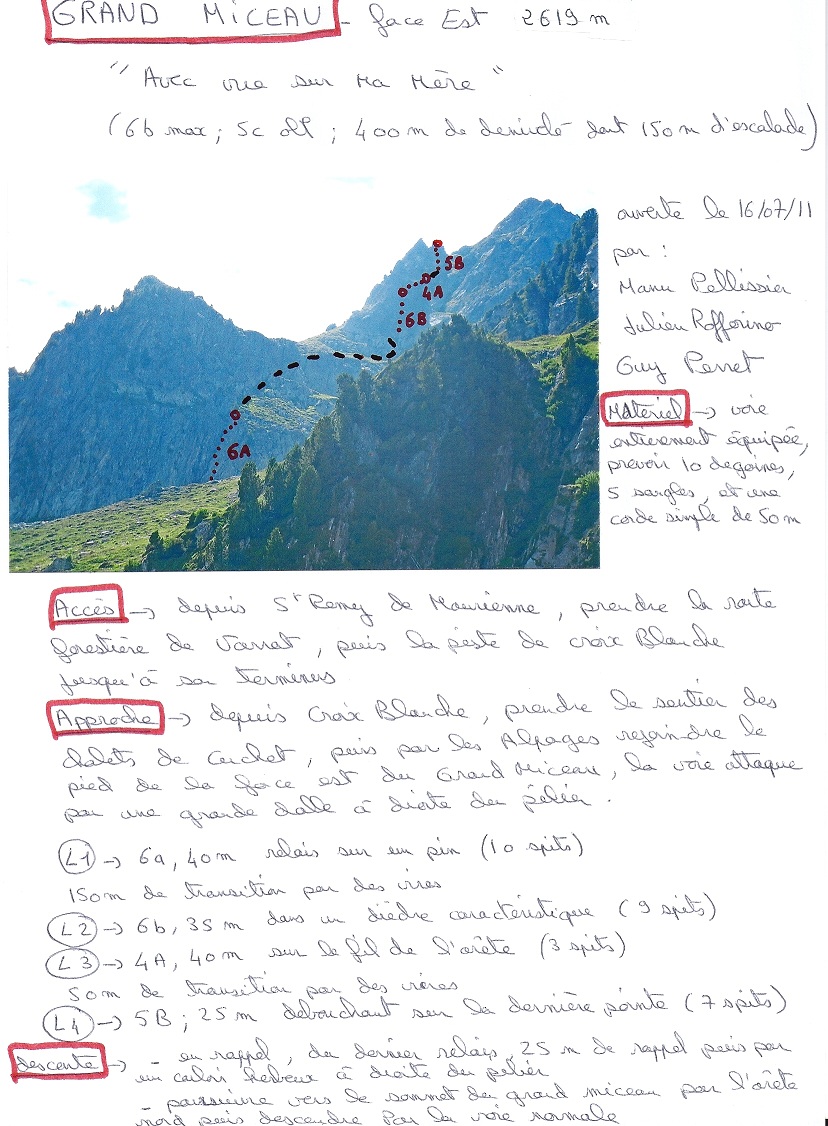 GRAND MICEAU - face Est 2619 m
"Avec vue sur Ma Mère"
(6b max; 5c obl; 400m de dénivelé dont 150m d'escalade)
ouverte le 16/07/11
par :
Manu Pellissier
Julien Rofforino
Guy Perret
Matériel → voie
entièrement équipée,
prévoir 10 dégaines,
5 sangles, et une
corde simple de 50m
5B
4A
6B
6A
Accès → depuis St Remy de Maurienne, prendre la route
forestière de , puis la piste de croix Blanche
jusqu'à son terminus
Approche → depuis Croix Blanche, prendre le sentier des
chalets de Cuchet, puis par les Alpages rejoindre le
pied de la face est du Grand Miceau, la voie attaque
par une grande dalle à droite du pilier.
L1 → 6a, 40m relais sur un pin (10 spits)
150m de transition par des vires
L2 → 6b, 35 m dans un dièdre caractéristique (9 spits)
L3 → 4A, 40m sur le fil de l'arête (3 spits)
50m de transition par des vires
L4 → 5B; 25 m débouchant sur la dernière pointe (7 spits)
descente → - en rappel, du dernier relais, 25 m de rappel puis par
un couloir herbeux à droite du pilier
- poursuivre vers le sommet du grand miceau par l'arête
nord puis descendre Par la voie normale